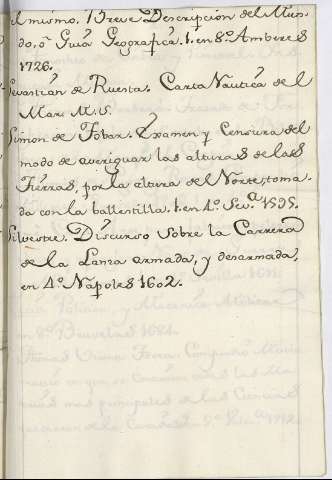 el mismo. Breve Descripcion del Mun-
do, ó Guía Geografica. 1. en 8º. Amberes
1726.
Sevastian de Ruesta. Carta Nautica del
Mar. M. S.
Simon de Tobar. Examen y Censura del
modo de averiguar las alturas de las
Tierras, por la altura del Norte, toma-
da con la ballestilla. 1. en 4º. Sevª. 1595.
Silvestre. Discurso sobre la Carrera
de la Lanza armada, y desarmada,
en 4º. Napoles 1602.